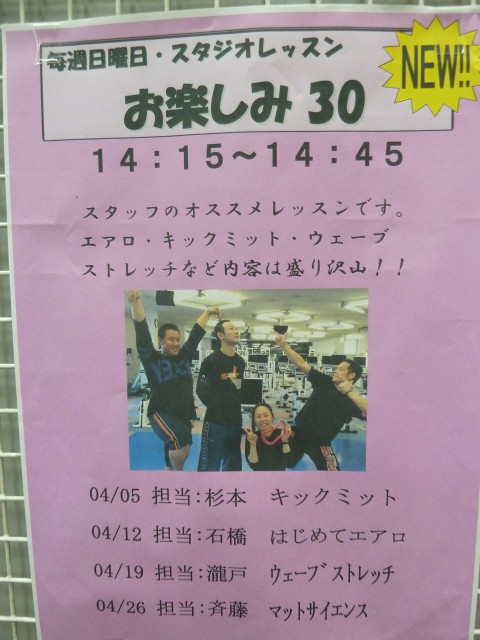 毎週日曜日・スタジオレッスン
お楽しみ 30
NEW!!
14:15～14:45
スタッフのオススメレッスンです。
エアロ・キックミット・ウェーブ
ストレッチなど内容は盛り沢山！！
04/05 担当:杉本 キックミット
04/12 担当:石橋 はじめてエアロ
04/19 担当:瀧戸 ウェーブストレッチ
04/26 担当:斉藤 マットサイエンス